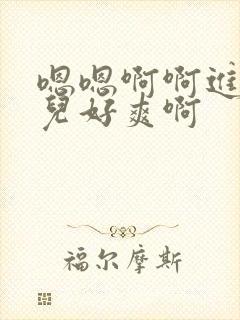 嗯嗯啊啊进
兒好爽啊
福尔摩斯